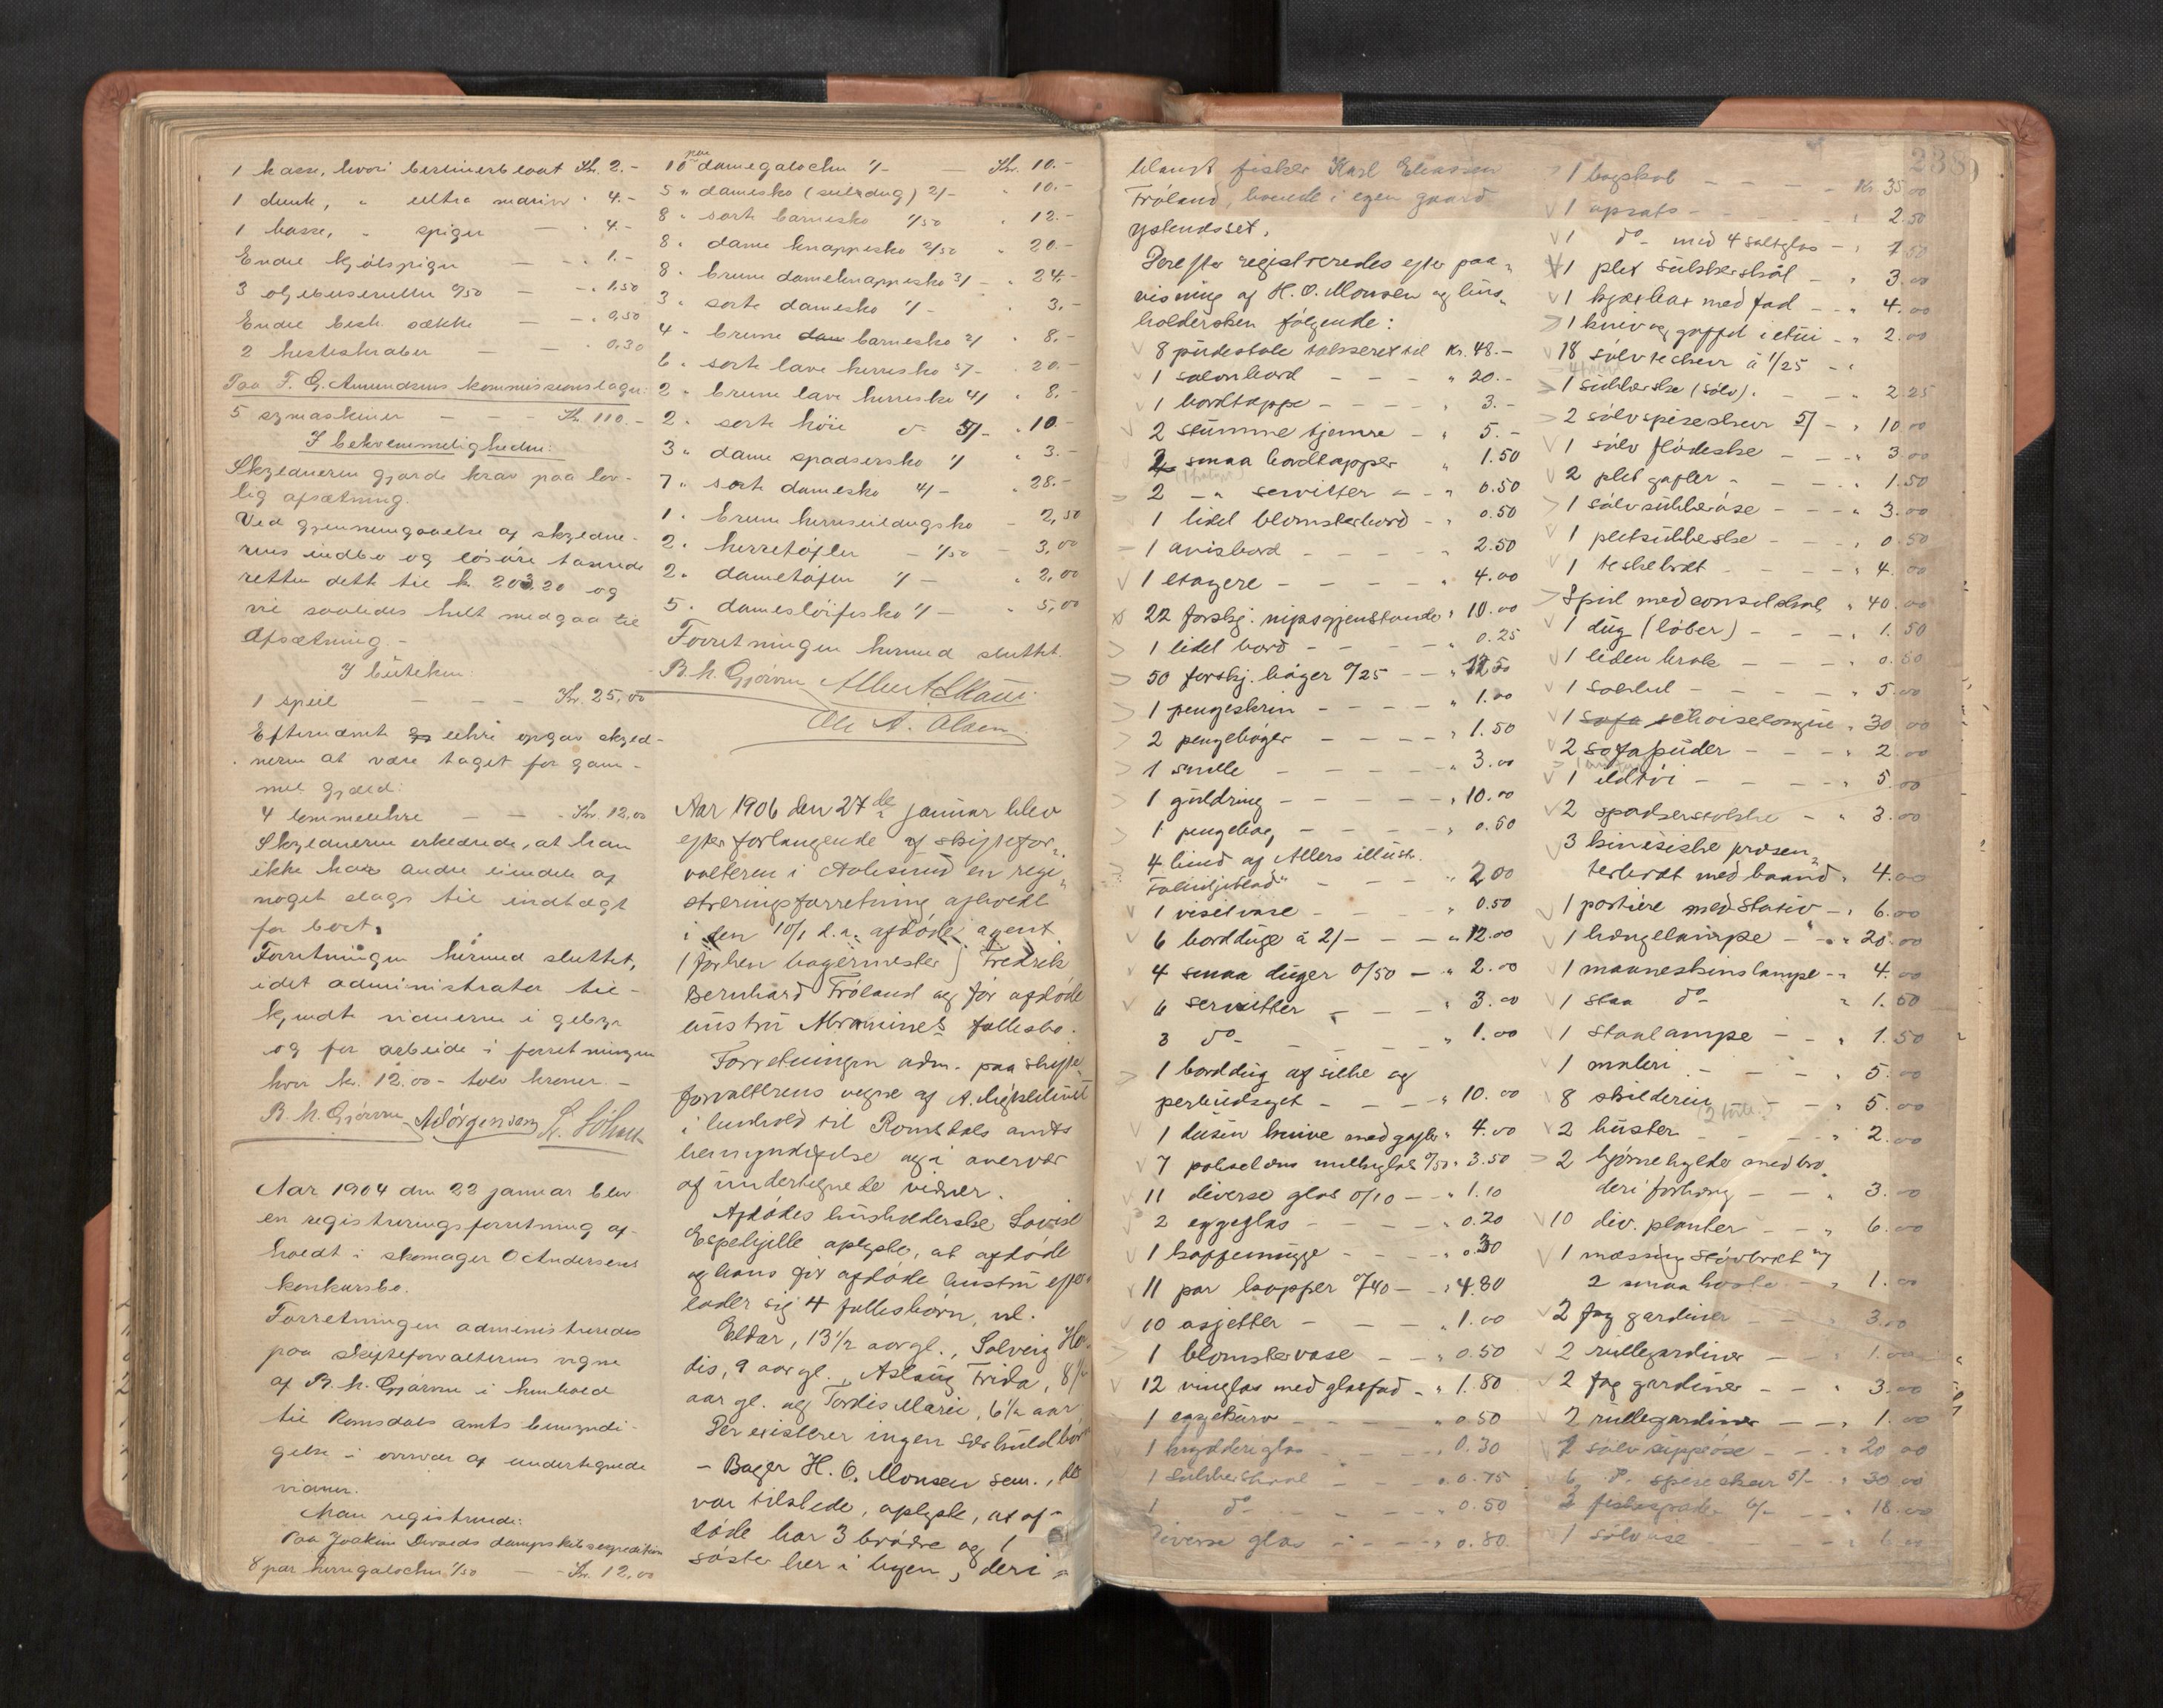 1 kasse, hvori berlinerblaat Kr. 2.-
1 dunk, " ultra marin " 4.-
1 kasse, " spiger — " 4.-
Endel hjólspiger — - " 1.-
3 oljebuserullen 0/50 — " 1.50
Endel besk. sække — - " 0,50
2 hesteskraber — — " 0.30
Paa T. G. Amundsens kommissionslager:
5 symaskiner — Kr. 110.-
I bekvemmeligheden:
Skyldneren gjorde krav paa lov-
lig afsætning.
Ved gjennemgaaelse af skyldne-
rens indbo og lösöre taxerede
retten dette til kr. 203.20 og
vil saaledes helt medgaa til
Afsætning -
I butiken
1 speil — — - Kr. 25,00
Efternævnte uhre opgav skyld-
neren at være taget for gam-
mel gjæld:
4 lommeuhre — — - Kr. 12,00
Skyldneren erklærede, at han
ikke har andre eiendele af
noget slags til indtægt
for boet.
Forretningen hermed sluttet,
idet administrator til-
kjendte vidnerne i gebyr
og for arbeide i forretningen
hver kr. 12.00 - tolv kroner. -
B. M. Gjörven AJörgensen
Aar 1904 den 22 januar blev
en registreringsforretning af-
holdt i skomager O Andersens
konkursbo.
Forretningen administreredes
paa skifteforvalterens vegne
af B. M. Gjörven i henhold
til Romsdals amts bemyndi-
gelse i overvær af undertegnede
vidner.
Man registrerede:
Paa Joakim Devolds dampskibsexpedition
8 par herregalocher 1/50 — - Kr. 12,00
10 par damegalocher 1/- — Kr. 10.-
5 " damesko (seildug) 2/- " 10.-
8 " sorte barnesko 1/50 " 12.-
8 " dame knappesko 2/50 " 20.-
8 " brune dameknappesko 3/- " 24.-
3 " sorte damesko 1/- " 3.-
4 " brune dam barnesko 2/ " 8.-
6 " sorte lave herresko " 20.-
2 " brune lave herresko 4/ " 8.-
2 " sorte höie do 5/- " 10.-
3 " dame spadsersko 1/ " 3.-
7 " sorte damesko 4/- " 28.-
1 " brune herreseildugsko - 2,50
2 " herretöfler - 1/50 - 3,00
2 " dametöfler 1/- " 2,00
5 " damesløifesko 1/- " 5,00
Forretningen hermed sluttet.
B. M. Gjörven Albert
Ole A. Olsen
Aar 1906 den 27de januar blev
efter forlangende af skiftefor-
valteren i Aalesund en regi-
streringsforretning afholdt
i den 10/1 d.a. afdöde agent
(forhen bagermester) Fredrik
Bernhard Fröland og för afdöde
hustru fællesbo.
Forretningen adm. paa skifte-
forvalterens vegne af A.
i henhold til Romsdals amts
bemyndigelse og i overvær
af undertegnede vidner.
Afdödes husholderske Lovise
Espehjelle oplyste, at afdöde
og hans för afdöde hustru efter-
lader sig 4 fællesbörn, nl.
Eldar, 13 1/2 aar gl., Solveig Ho-
dis, 9 aar gl., Aslaug Frida, 8 1/2
aar gl. og Tordis Marie, 6 1/2 aar
Der existerer ingen særkuldbörn
- Bager H. O. Monsen sen., der
var tilstede, oplyste, at af-
döde har 3 brödre og 1
söster her i byen, deri-
blandt fisker Karl Eliassen
Fröland, boende i egen gaard
ystenosset.
Derefter registreredes efter paa-
visning af H. O. Monsen og hus-
holdersken følgende:
8 pudestole taxseret til Kr. 48.-
1 salonbord - - - " 20.-
1 bordtæppe - - - - " 3.-
2 stumme tjenere - " 5.-
2 smaa bordtæpper " 1.50
2 -"- servitter - - " 0.50
1 lidet blomsterbord - " 0.50
1 avisbord - - - - " 2.50
1 etagere - - - - " 4.00
22 forskj. nipsgjenstande " 10.00
1 lidet bord - - - " 0.25
50 forskj. böger 0/25 - - " 12.50
1 pengeskrin - - - - " 1.00
2 pengeböger - - - - " 1.50
1 snelle - - - - - " 3.00
1 guldring - - - - - " 10.00
1 pengebog - - - - " 0.50
4 bind af Allers illustr.
Familjeblad" - - - " 2.00
1 visitvase - - - - " 0.50
6 bordduge á 2/- - - " 12.00
4 smaa duger 0/50 - " 2.00
6 servitter - - - " 3.00
3 do - - - - - " 1.00
1 borddug af silke og
perlindsyet - - - - " 10.00
1 dusin knive med gafler " 4.00
7 pokaler 0/50 " 3.50
11 diverse glas 0/10 - - " 1.10
2 eggeglas - - - - - " 0.20
1 kaffemugge - - - - " 0.30
11 par kopper 0/40 - " 4.80
10 asjetter - - - - " 1.00
1 blomstervase - - " 0.50
12 vinglas med glasfad - " 1.80
1 eggekurv - - - - " 0.50
1 krydderiglas - - - " 0.30
1 sukkerskaal - - - " 0.75
1 do - - - - " 0.50
Diverse glas - - - - " 0.80
238
1 bogskab - - - - Kr. 35.00
1 opsats - - - - - " 2.50
1 do - med 4 saltglas - " 1.50
1 plet sukkerskål - " 3.00
1 kjæxbox med fad - - " 4.00
1 kniv og gaffel i etui - " 2.00
18 sølvteskeer á 1/25 - "
1 sukkerske (sølv) - - " 2.25
2 sølvspiseskeer 5/ - " 10.00
1 sølv flødeske - - - " 3.00
2 plet gafler - - - - " 1.50
1 sølvsukkeröse - - - " 3.00
1 pletsukkerske - - - " 0.50
1 teskebræt - - - - " 4.00
Speil med consolskab " 40.00
1 dug (löber) - - - " 1.50
1 liden krak - - - " 0.50
1 - - - - - " 5.00
1 sofa schaiselongue " 30.00
2 sofapuder - - - " 2.00
1 ildtøi - - - - - " 5.00
2 spadserstokke - - " 3.00
3 kinesiske præsen-
terbræt med baand " 4.00
1 portiére med stativ - " 6.00
1 hængelampe - " 20.00
1 maaneskinslampe - " 4.00
1 staa do - " 1.50
1 staalampe - - " 1.50
1 maleri - - - - " 5.00
8 skilderier - - - " 5.00
2 büster - - - - " 2.00
2 hjørnehylder med bro-
deri forhæng - - - " 3.00
10 div. planter - - " 6.00
1 messing stövbræt og
2 smaa koste - - " 1.00
2 fag gardiner - - " 3.00
2 rullegardiner - - " 1.00
2 fag gardiner - - " 3.00
2 rullegardiner - - " 1.00
1 sølv suppeöse - - " 20.00
6 do. spiseskeer 5/- " 30.00
3 fiskespader 6/- - - " 18.00
1 - - - - "